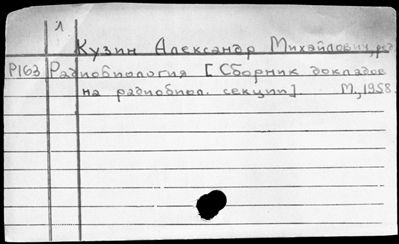 1
Кузин Александр Михайлович, ред
Р163 Радиобиология [Сборник докладов
на радиобиол. секции]. М., 1958.